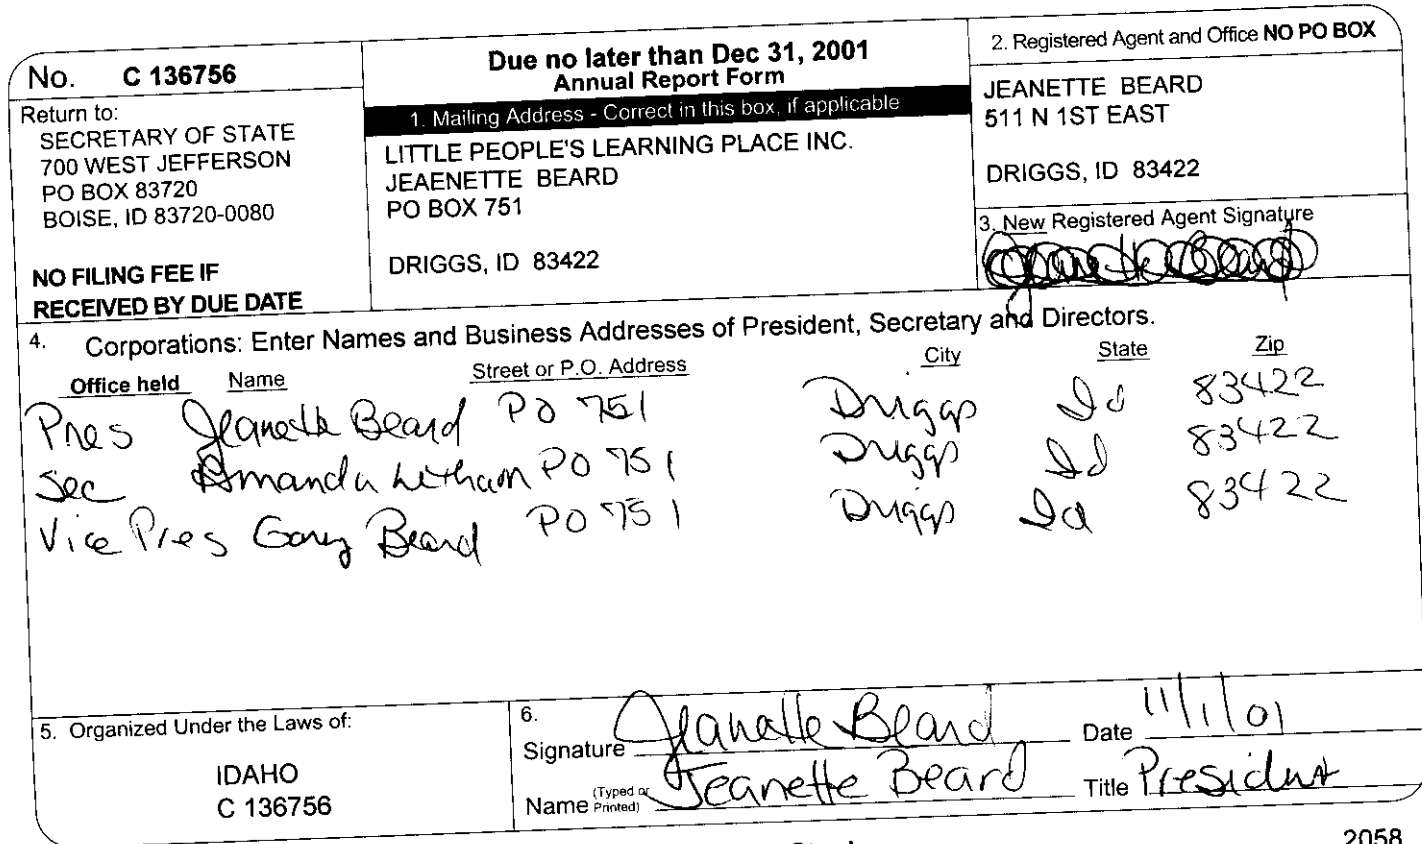 No. C 136756
Return to:
SECRETARY OF STATE
700 WEST JEFFERSON
PO BOX 83720
BOISE, ID 83720-0080
NO FILING FEE IF
RECEIVED BY DUE DATE
Due no later than Dec 31, 2001
Annual Report Form
1. Mailing Address - Correct in this box, if applicable
LITTLE PEOPLE'S LEARNING PLACE INC.
JEAENETTE BEARD
PO BOX 751
DRIGGS, ID 83422
2. Registered Agent and Office NO PO BOX
JEANETTE BEARD
511 N 1ST EAST
DRIGGS, ID 83422
3. New Registered Agent Signature
Jeanette Beard
4. Corporations: Enter Names and Business Addresses of President, Secretary and Directors.
Office held Name Street or P.O. Address City State Zip
Pres Jeanette Beard PO 751 Driggs Id 83422
Sec Amanda PO 751 Driggs Id 83422
Vice Pres Gary Beard PO 751 Driggs Id 83422
5. Organized Under the Laws of:
IDAHO
C 136756
6.
Signature Jeanette Beard Date 11/1/01
Name (Typed or Printed) Jeanette Beard Title President
2058